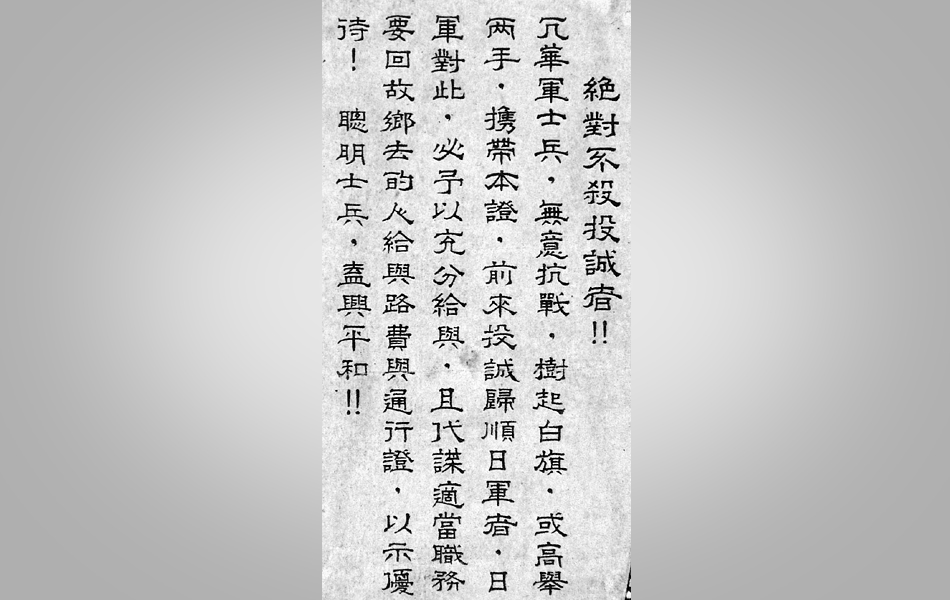 絶對不殺投誠者!!
凡華軍士兵，無意抗戰，樹起白旗，或高舉
两手，携帶本證，前來投誠歸順日軍者，日
軍對此，必予以充分給與，且代謀適當職務
要回故鄉去的人給與路費與通行證，以示優
待！　聰明士兵，盍興平和!!